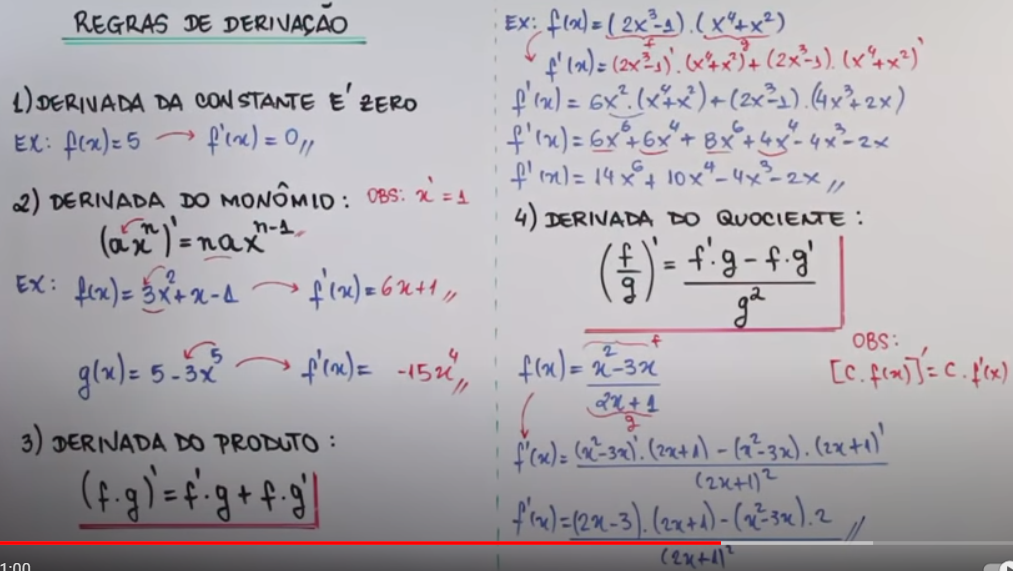 REGRAS DE DERIVAÇÃO
1) DERIVADA DA CONSTANTE E' ZERO
EX: f(x)=5 → f'(x)=0,,
2) DERIVADA DO MONÔMIO: OBS: x'=1
(ax^n)'=nax^(n-1)
EX: f(x)=3x²+x-1 → f'(x)=6x+1,,
g(x)=5-3x⁵ → f'(x)= -15x⁴,,
3) DERIVADA DO PRODUTO:
(f·g)'=f'·g+f·g'
EX: f(x)=(2x³-1).(x⁴+x²)
f g
f'(x)=(2x³-1)'.(x⁴+x²)+(2x³-1).(x⁴+x²)'
f'(x)=6x².(x⁴+x²)+(2x³-1).(4x³+2x)
f'(x)=6x⁶+6x⁴+8x⁶+4x⁴-4x³-2x
f'(x)=14x⁶+10x⁴-4x³-2x,,
4) DERIVADA DO QUOCIENTE:
(f/g)'= f'·g-f·g'
g²
OBS:
[c.f(x)]'=c.f'(x)
f
f(x)= x²-3x
2x+1
g
f'(x)= (x²-3x)'.(2x+1)-(x²-3x).(2x+1)'
(2x+1)²
f'(x)=(2x-3).(2x+1)-(x²-3x).2 //
(2x+1)²
1:00